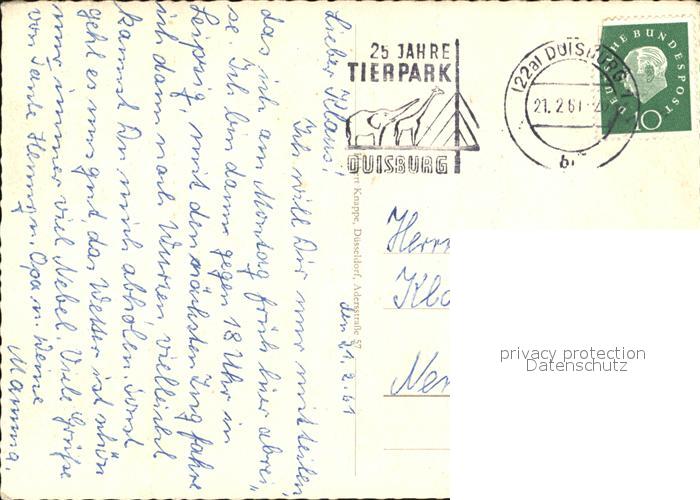 Lieber Klaus!
Ich will Dir nur mitteilen,
das ich am Montag früh hier abrei,
se. Ich bin dann gegen 18 Uhr in
Leipzig, mit den nächsten Zug fahre
ich dann nach Wurzen vielleicht
kannst Du mich abholen. Sonst
geht es uns gut das Wetter ist schön
nur immer viel Nebel. Viele Grüße
von Tante Henny u. Opa u. Deine
Mamma.
den 21.2.61
Knappe, Düsseldorf, Adersstraße 57
25 JAHRE
TIERPARK
DUISBURG
(22a) DUISBURG 1
21.2.61
br
DEUTSCHE BUNDESPOST
10
Herrn
Kl
privacy protection
Datenschutz